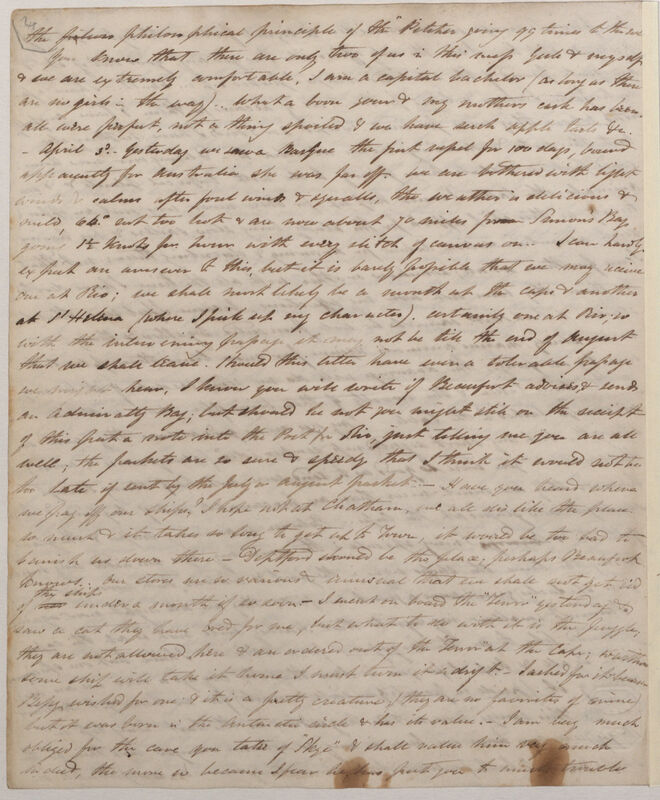 the philosophical principle of the "Pitcher going 99 times to the well
You know that there are only two of us in this mess Yule & myself
& we are extremely comfortable, I am a capital bachelor (as long as there
are no girls in the way). What a boon your & my mothers cask has been.
all were perfect, not a thing spoiled & we have such apple tarts &c.
- April 3d - Yesterday we saw a Barque the first vessel for 100 days, bound
apparently for Australia she was far off. we are bothered with light
winds & calms after foul winds & squalls, the weather is delicious &
mild, 64° not too hot & are now about 70 miles from Simons Bay
going 1½ knots per hour with every stitch of canvas on - I can hardly
expect an answer to this, but it is barely possible that we may receive
one at Rio; we shall most likely be a month at the Cape & another
at St Helena (where I pick up my character). certainly one at Rio, so
with the intervening passage it may not be till the end of August
that we shall leave. Should this letter have even a tolerable passage
we might hear, I know you will write if Beaufort advises & sends
an Admiralty Bag; but should he not you might still on the receipt
of this put a note into the Post for Rio just telling me you are all
well; the packets are so sure & speedy that I think it would not be
too late if sent by the July or August packet. - Have you heard where
we pay off our ships? I hope not at Chatham, we all dislike the place
so much & it takes so long to get up to Town, it would be too bad to
banish us down there - Deptford should be the place, perhaps Beaufort
knows. Our stores are so various & unusual that we shall not get rid
of the ships under a month if so soon - I went on board the "Terror" yesterday &
saw a cat they have for me, but what to do with it is the puzzle,
they are not allowed here & are ordered out of the "Terror" at the Cape; unless
some ship will take it home I must turn it adrift. - I asked for it because
Bessy wished for one & it is a pretty creature (they are no favorites of mine)
but it was born in the Antarctic circle & has its value. - I am very much
obliged for the care you take of "Skye" & shall value him very much
indeed, the more so because I fear he has put you to much trouble